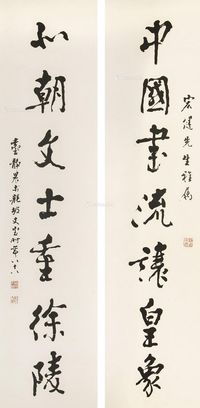 中國書流讓皇象
宏達先生雅屬
北朝文士重徐陵
臺靜農於龍坡丈室時年八十六